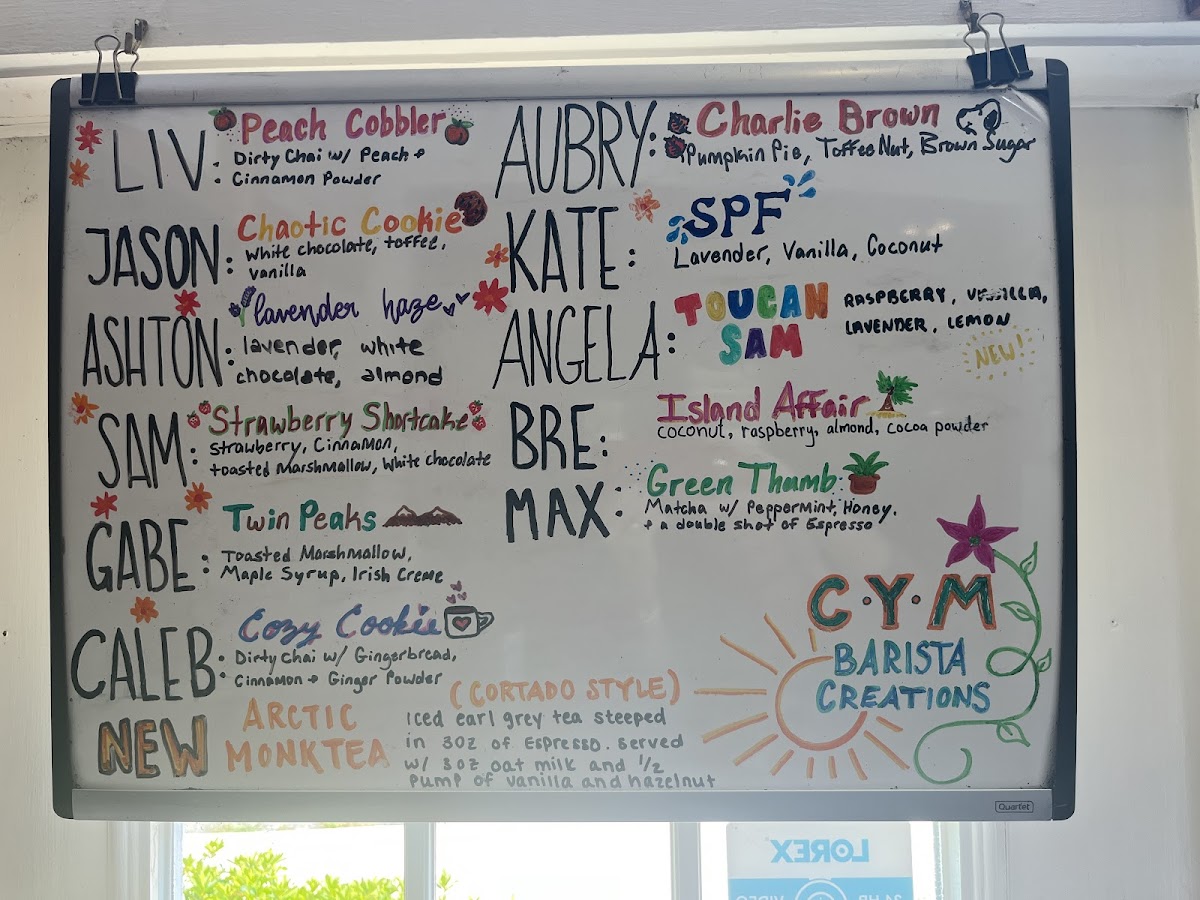 LIV: Peach Cobbler
Dirty Chai w/ Peach +
Cinnamon Powder
JASON: Chaotic Cookie
White chocolate, toffee,
vanilla
ASHTON: lavender haze
lavender, white
chocolate, almond
SAM: Strawberry Shortcake
Strawberry, Cinnamon,
toasted Marshmallow, White chocolate
GABE: Twin Peaks
Toasted Marshmallow,
Maple Syrup, Irish Creme
CALEB: Cozy Cookie
Dirty Chai w/ Gingerbread,
Cinnamon + Ginger Powder
NEW ARCTIC
MONKTEA
(CORTADO STYLE)
Iced earl grey tea steeped
in 3oz of Espresso. served
w/ 3oz oat milk and 1/2
pump of vanilla and hazelnut
AUBRY: Charlie Brown
Pumpkin Pie, Toffee Nut, Brown Sugar
KATE: SPF
Lavender, Vanilla, Coconut
ANGELA: TOUCAN
SAM
RASPBERRY, VANILLA,
LAVENDER, LEMON
NEW!
BRE: Island Affair
coconut, raspberry, almond, cocoa powder
MAX: Green Thumb
Matcha w/ Peppermint, Honey,
+ a double shot of Espresso
C.Y.M
BARISTA
CREATIONS
Quartet
LOREX
24 HR VIDEO